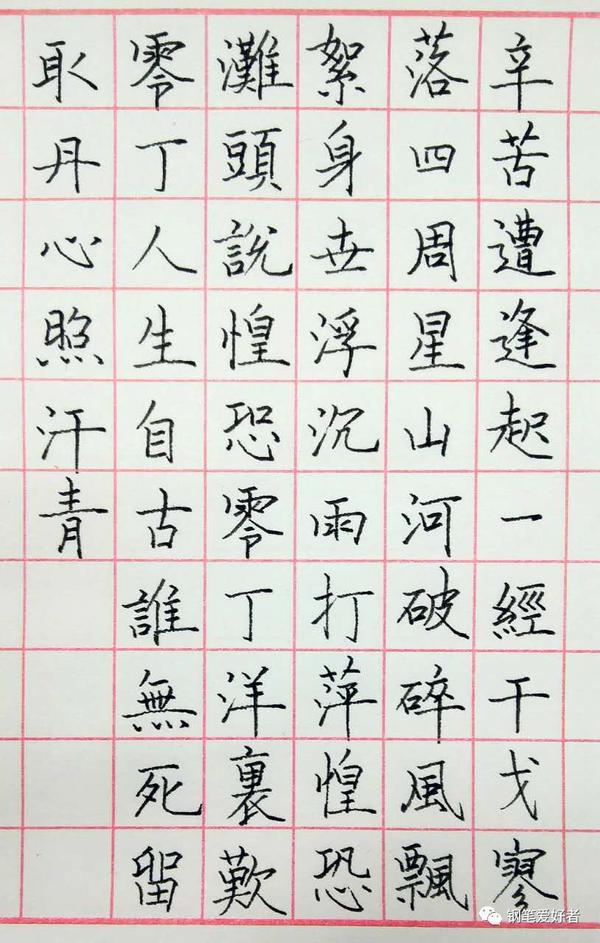 辛苦遭逢起一經干戈寥
落四周星山河破碎風飄
絮身世浮沉雨打萍惶恐
灘頭說惶恐零丁洋裏歎
零丁人生自古誰無死留
取丹心照汗青
钢笔爱好者